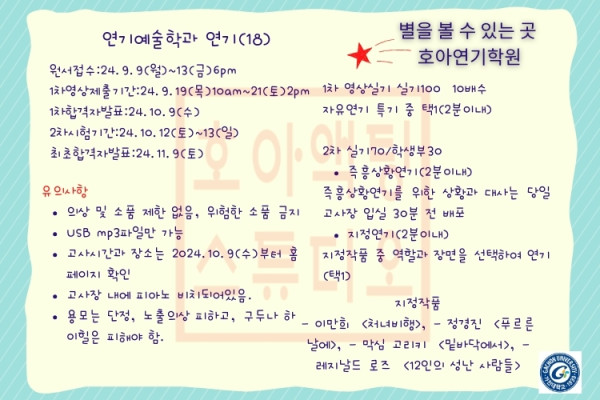 연기예술학과 연기(18)
별을 볼 수 있는 곳
호아연기학원
원서접수:24. 9. 9(월)~13(금)6pm
1차영상제출기간:24. 9. 19(목)10am~21(토)2pm
1차합격자발표:24. 10. 9(수)
2차시험기간:24. 10. 12(토)~13(일)
최초합격자발표:24. 11. 9(토)
유의사항
• 의상 및 소품 제한 없음, 위험한 소품 금지
• USB mp3파일만 가능
• 고사시간과 장소는 2024. 10. 9(수)부터 홈
페이지 확인
• 고사장 내에 피아노 비치되어있음.
• 용모는 단정, 노출의상 피하고, 구두나 하
이힐은 피해야 함.
1차 영상실기 실기100 10배수
자유연기 특기 중 택1(2분이내)
2차 실기70/학생부30
• 즉흥상황연기(2분이내)
즉흥상황연기를 위한 상황과 대사는 당일
고사장 입실 30분 전 배포
• 지정연기(2분이내)
지정작품 중 역할과 장면을 선택하여 연기
(택1)
지정작품
- 이만희 <처녀비행>, - 정경진 <푸르른
날에>, - 막심 고리키 <밑바닥에서>, -
레지날드 로즈 <12인의 성난 사람들>
호아액팅
스튜디오